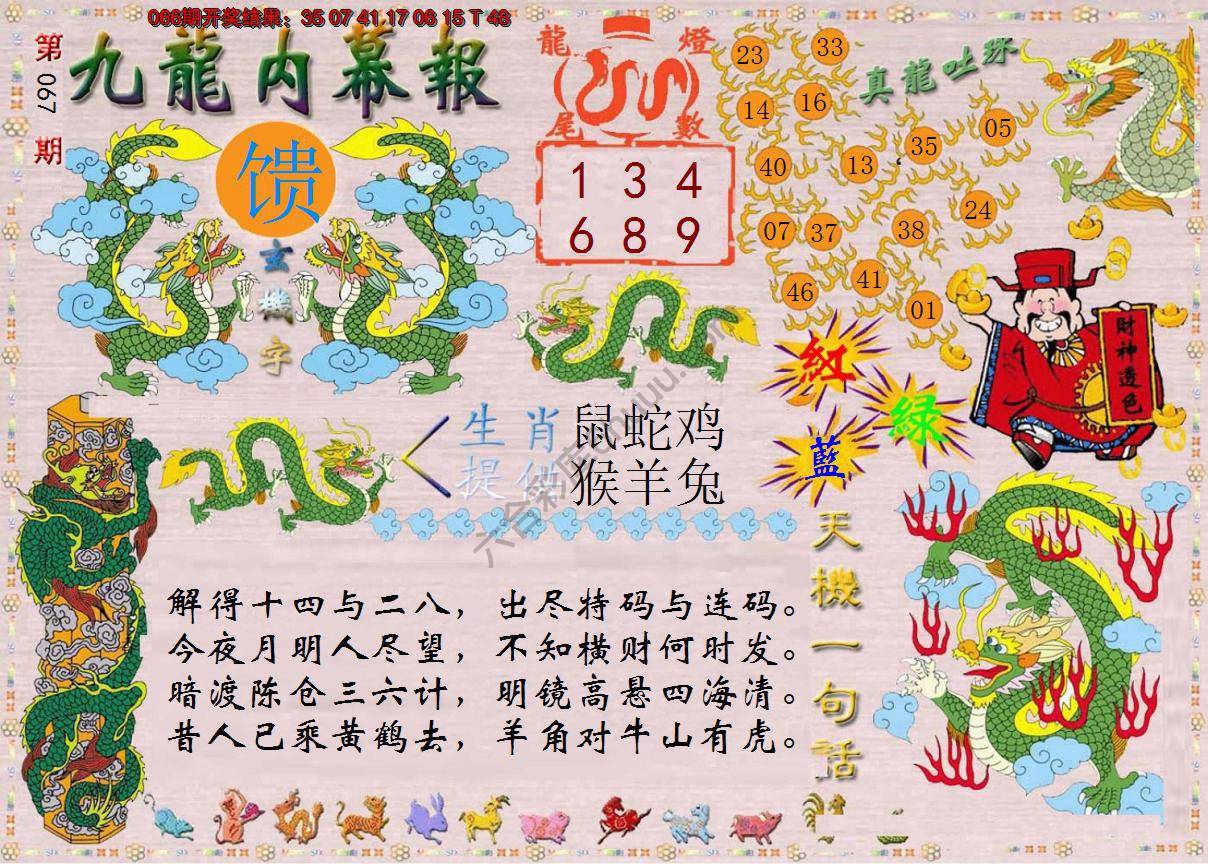 066期开奖结果：35 07 41 17 06 15 T 48
第067期
九龍内幕報
馈
玄機字
龍燈
尾數
1 3 4
6 8 9
真龍吐珠
23 33
14 16
40 13 35 05
07 37 38 24
46 41 01
財神透色
紅
綠
藍
生肖 鼠蛇鸡
提供 猴羊兔
天機一句話
解得十四与二八，出尽特码与连码。
今夜月明人尽望，不知横财何时发。
暗渡陈仓三六计，明镜高悬四海清。
昔人已乘黄鹤去，羊角对牛山有虎。